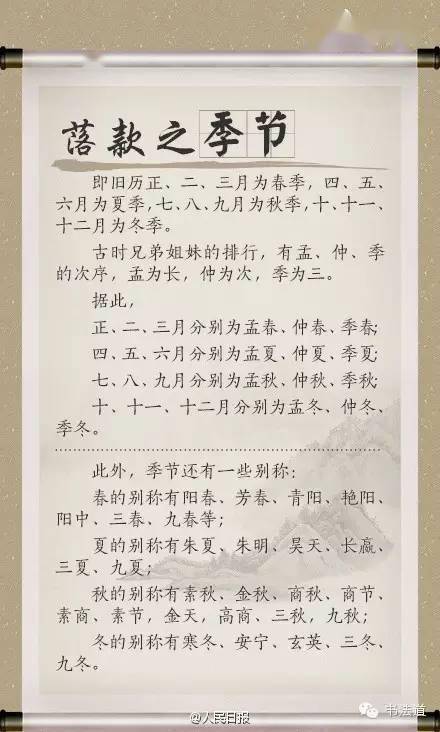 落款之季节
即旧历正、二、三月为春季，四、五、
六月为夏季，七、八、九月为秋季，十、十一、
十二月为冬季。
古时兄弟姐妹的排行，有孟、仲、季
的次序，孟为长，仲为次，季为三。
据此，
正、二、三月分别为孟春、仲春、季春；
四、五、六月分别为孟夏、仲夏、季夏；
七、八、九月分别为孟秋、仲秋、季秋；
十、十一、十二月分别为孟冬、仲冬、
季冬。
此外，季节还有一些别称：
春的别称有阳春、芳春、青阳、艳阳、
阳中、三春、九春等；
夏的别称有朱夏、朱明、昊天、长嬴、
三夏、九夏；
秋的别称有素秋、金秋、商秋、商节、
素商、素节，金天，高商、三秋，九秋；
冬的别称有寒冬、安宁、玄英、三冬、
九冬。
@人民日报
书法道